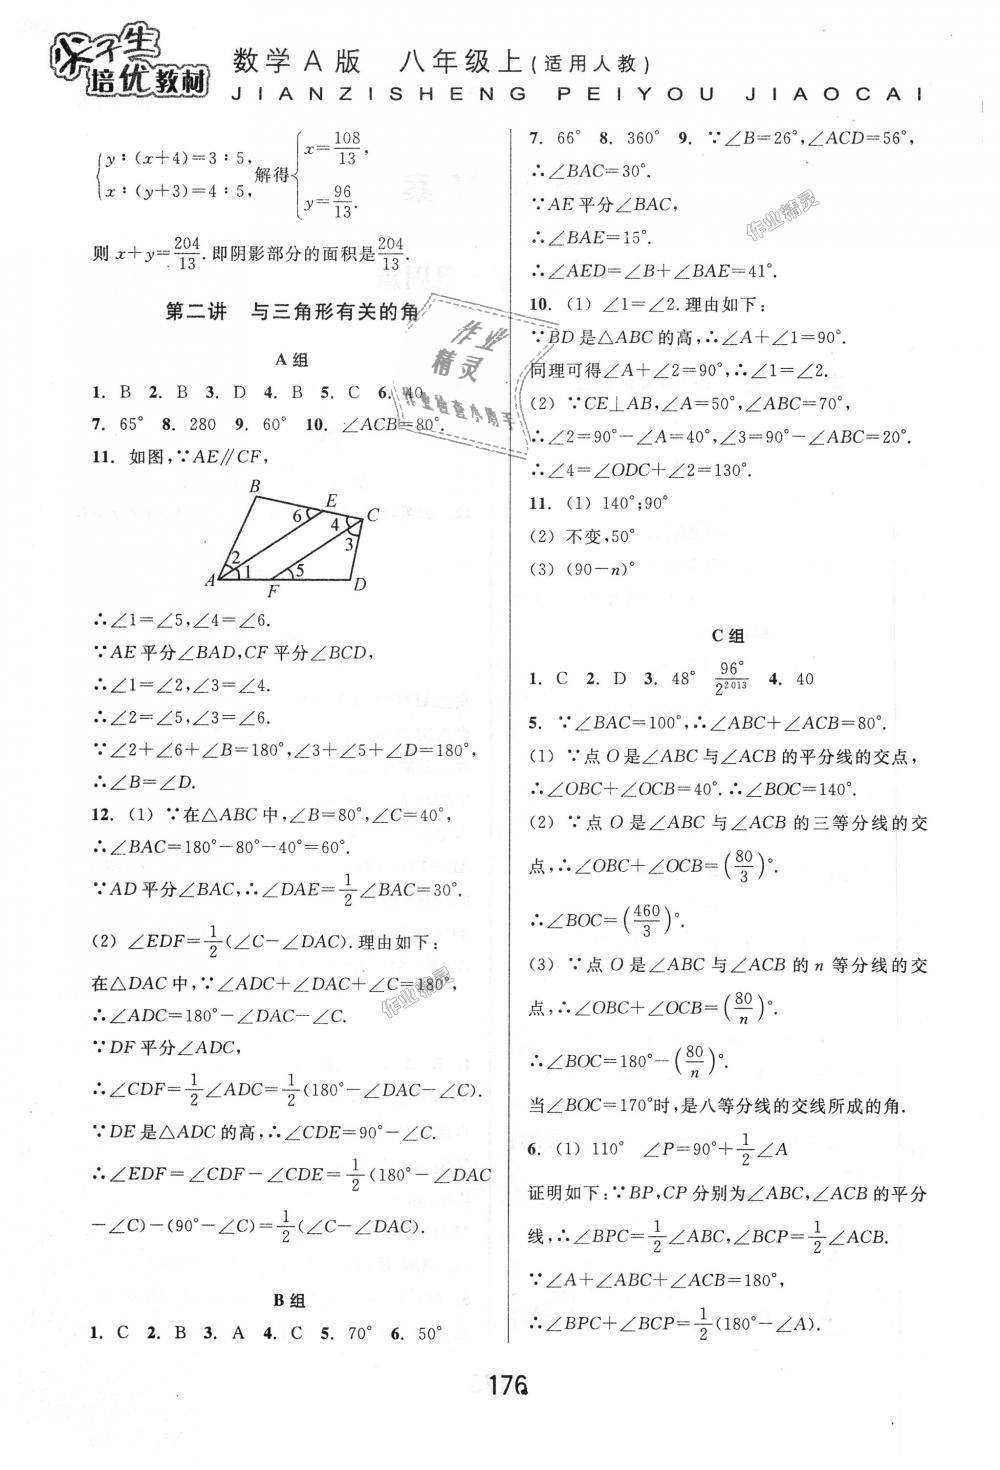 尖子生
培优教材
数学A版 八年级上(适用人教)
JIANZISHENG PEIYOU JIAOCAI
{y∶(x+4)=3∶5, x∶(y+3)=4∶5, 解得{x=108/13, y=96/13.
则 x+y=204/13.即阴影部分的面积是204/13.
第二讲 与三角形有关的角
A组
1. B 2. B 3. D 4. B 5. C 6. 40
7. 65° 8. 280 9. 60° 10. ∠ACB=80°.
11. 如图,∵AE∥CF,
B
E
C
6
4
3
2
1
5
A
F
D
∴∠1=∠5,∠4=∠6.
∵AE平分∠BAD,CF平分∠BCD,
∴∠1=∠2,∠3=∠4.
∴∠2=∠5,∠3=∠6.
∵∠2+∠6+∠B=180°,∠3+∠5+∠D=180°,
∴∠B=∠D.
12. (1) ∵在△ABC中,∠B=80°,∠C=40°,
∴∠BAC=180°-80°-40°=60°.
∵AD平分∠BAC,∴∠DAE=1/2∠BAC=30°.
(2) ∠EDF=1/2(∠C-∠DAC).理由如下:
在△DAC中,∵∠ADC+∠DAC+∠C=180°,
∴∠ADC=180°-∠DAC-∠C.
∵DF平分∠ADC,
∴∠CDF=1/2∠ADC=1/2(180°-∠DAC-∠C).
∵DE是△ADC的高,∴∠CDE=90°-∠C.
∴∠EDF=∠CDF-∠CDE=1/2(180°-∠DAC
-∠C)-(90°-∠C)=1/2(∠C-∠DAC).
B组
1. C 2. B 3. A 4. C 5. 70° 6. 50°
7. 66° 8. 360° 9. ∵∠B=26°,∠ACD=56°,
∴∠BAC=30°.
∵AE平分∠BAC,
∴∠BAE=15°.
∴∠AED=∠B+∠BAE=41°.
10. (1) ∠1=∠2.理由如下:
∵BD是△ABC的高,∴∠A+∠1=90°.
同理可得∠A+∠2=90°,∴∠1=∠2.
(2) ∵CE⊥AB,∠A=50°,∠ABC=70°,
∴∠2=90°-∠A=40°,∠3=90°-∠ABC=20°.
∴∠4=∠ODC+∠2=130°.
11. (1) 140°;90°
(2) 不变,50°
(3) (90-n)°
C组
1. C 2. D 3. 48° 96°/2^2013 4. 40
5. ∵∠BAC=100°,∴∠ABC+∠ACB=80°.
(1) ∵点O是∠ABC与∠ACB的平分线的交点,
∴∠OBC+∠OCB=40°.∴∠BOC=140°.
(2) ∵点O是∠ABC与∠ACB的三等分线的交
点,∴∠OBC+∠OCB=(80/3)°.
∴∠BOC=(460/3)°.
(3) ∵点O是∠ABC与∠ACB的n等分线的交
点,∴∠OBC+∠OCB=(80/n)°.
∴∠BOC=180°-(80/n)°.
当∠BOC=170°时,是八等分线的交线所成的角.
6. (1) 110° ∠P=90°+1/2∠A
证明如下:∵BP,CP分别为∠ABC,∠ACB的平分
线,∴∠BPC=1/2∠ABC,∠BCP=1/2∠ACB.
∵∠A+∠ABC+∠ACB=180°,
∴∠BPC+∠BCP=1/2(180°-∠A).
176
作业精灵
作业
精灵
作业检查小帮手
作业精灵